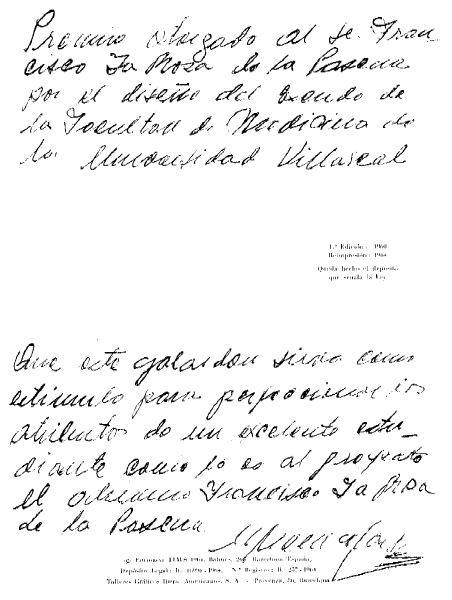 Premio otorgado al Sr. Fran-
cisco La Rosa de la Pascua
por el diseño del Escudo de
la Facultad de Medicina de
la Universidad Villareal
1.ª Edición: 1960
Reimpresión: 1964
Queda hecho el depósito
que señala la Ley
Que este galardon sirva como
estimulo para perfeccionar los
atributos de un excelente estu-
diante como lo es al
el alumno Francisco La Rosa
de la Pascua
Barcelona (España)
Depósito Legal: B.
Talleres Gráficos Ibero-Americanos, S. A. - Provenza, Barcelona